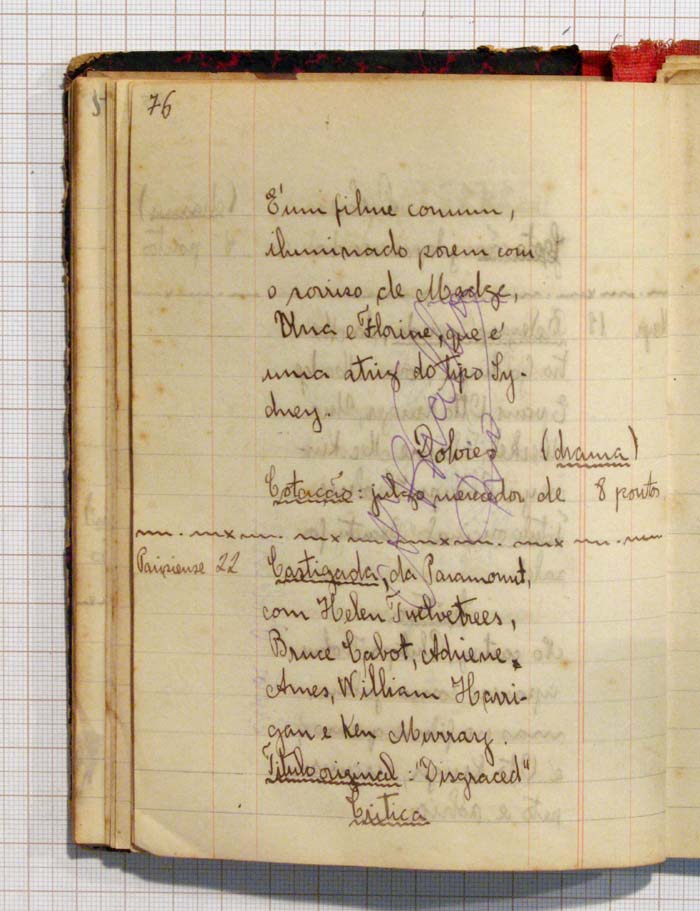 76
É um filme comum,
iluminado porem com
o sorriso de Madge,
Una e Florine, que é
uma atriz do tipo Sy-
dney.
(drama)
Cotação: julgo merecedor de 8 pontos
Parisiense 22 Castigada, da Paramount,
com Helen Twelvetrees,
Bruce Cabot, Adriene
Ames, William Harri-
gan e Ken Murray.
Titulo original: "Disgraced"
Critica